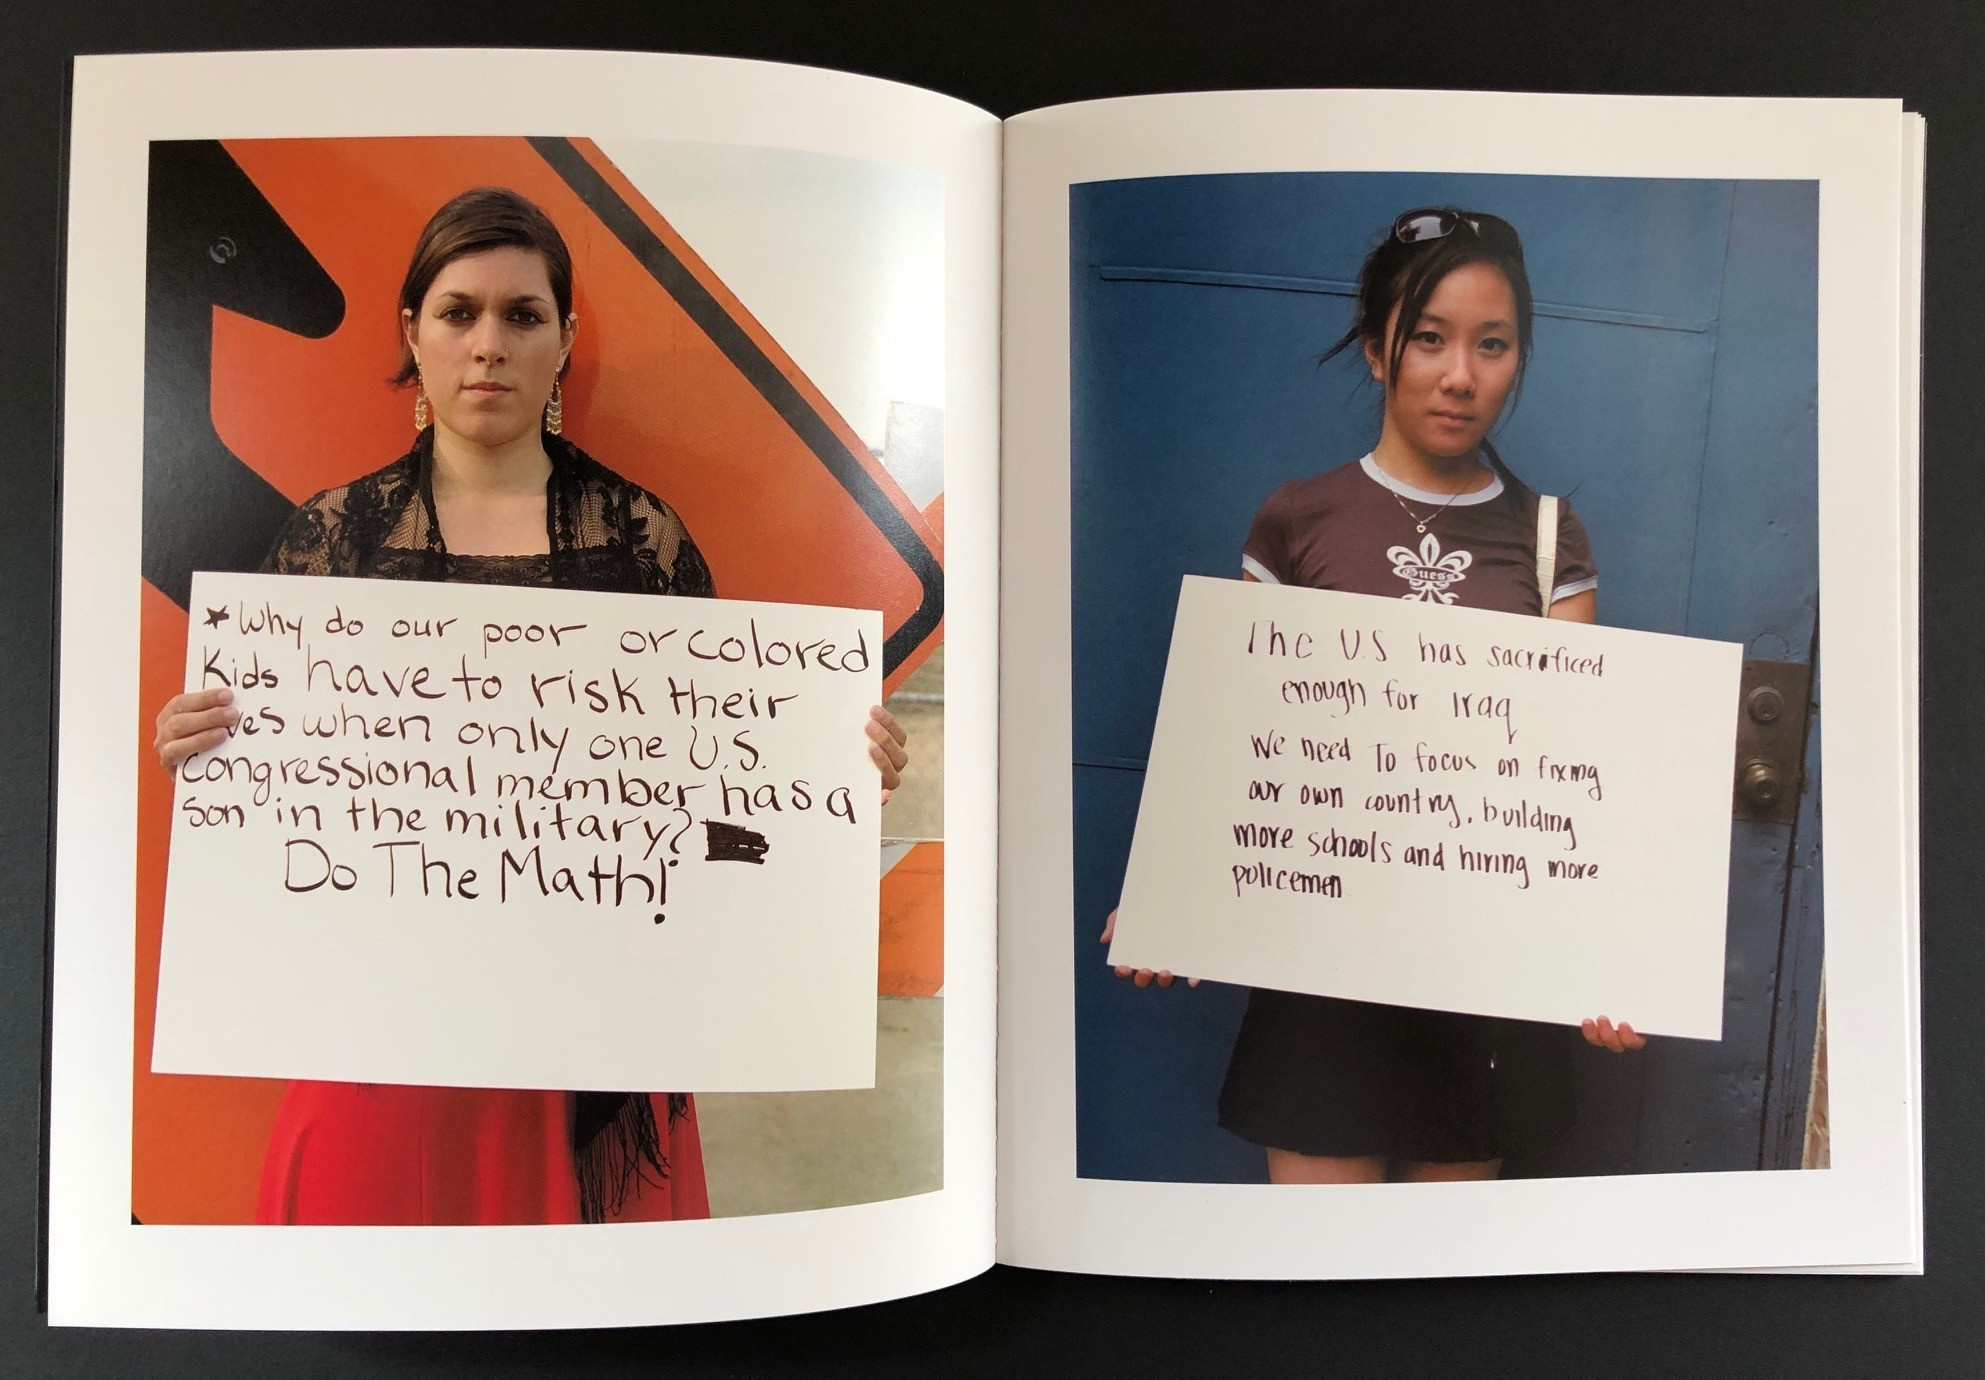 ★Why do our poor or colored
Kids have to risk their
ves when only one U.S.
congressional member has a
son in the military?
Do The Math!
Guess
The U.S has sacrificed
enough for Iraq
We need To focus on fixing
our own country, building
more schools and hiring more
policemen